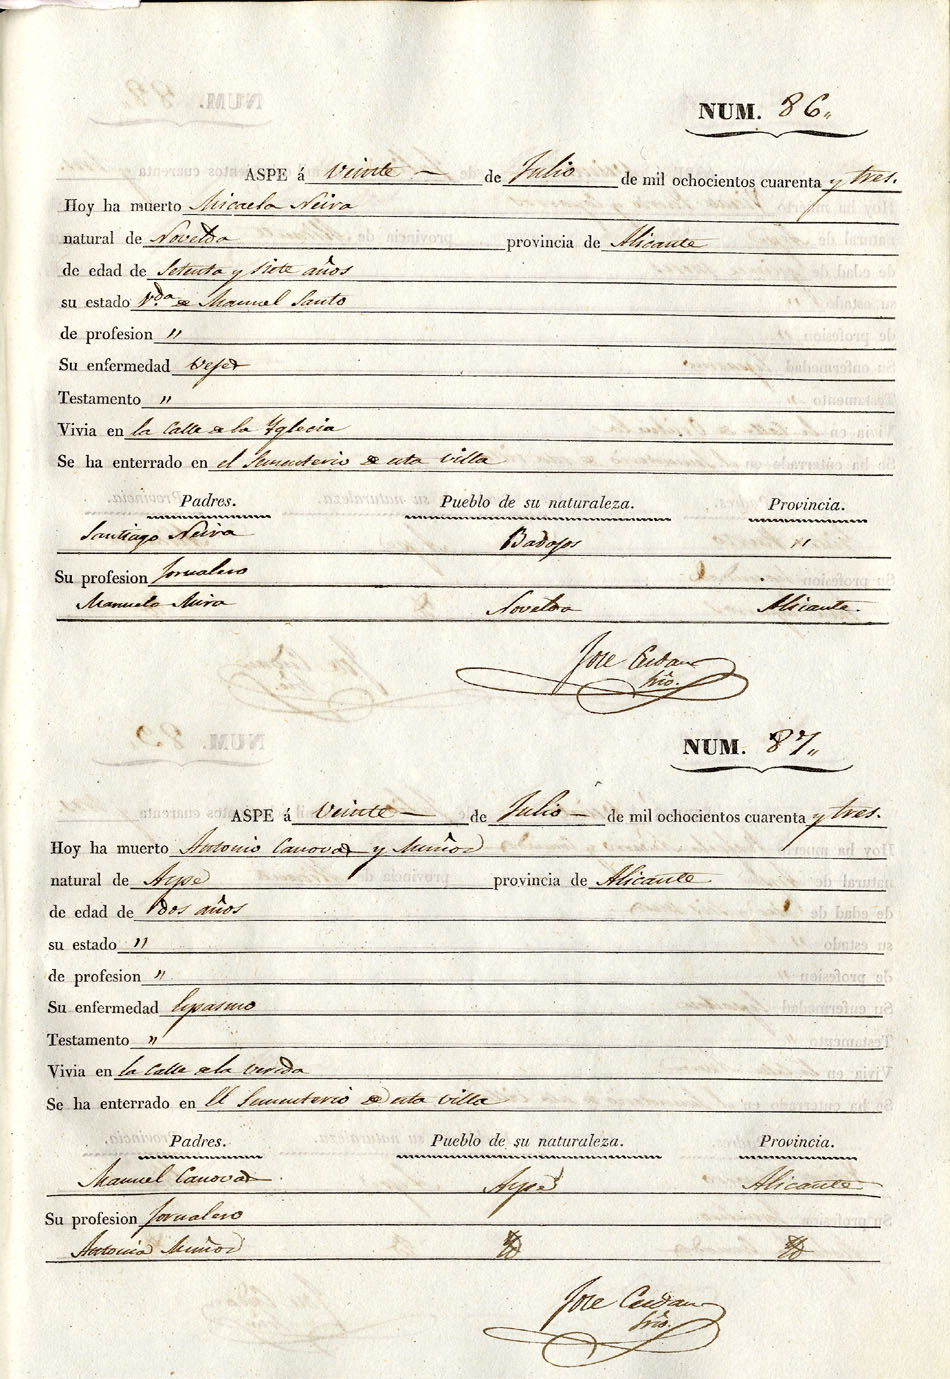 NUM. 86"
ASPE á Veinte — de Julio de mil ochocientos cuarenta y tres.
Hoy ha muerto Micaela Neira
natural de Novelda provincia de Alicante
de edad de Setenta y siete años
su estado V.da de Manuel Santo
de profesion "
Su enfermedad vejed
Testamento "
Vivia en la Calle de la Yglecia
Se ha enterrado en el Sementerio de esta villa
Padres. Pueblo de su naturaleza. Provincia.
Santiago Neira Badajos "
Su profesion Jornalero
Manuela Mira Novelda Alicante.
Jose
NUM. 87"
ASPE á Veinte — de Julio — de mil ochocientos cuarenta y tres.
Hoy ha muerto Antonio Canovas y Muños
natural de Aspe provincia de Alicante
de edad de dos años
su estado "
de profesion "
Su enfermedad Espasmo
Testamento "
Vivia en la Calle de la Vereda
Se ha enterrado en El Sementerio de esta villa
Padres. Pueblo de su naturaleza. Provincia.
Manuel Canovas Aspe Alicante
Su profesion Jornalero
Antonia Muños
Jose